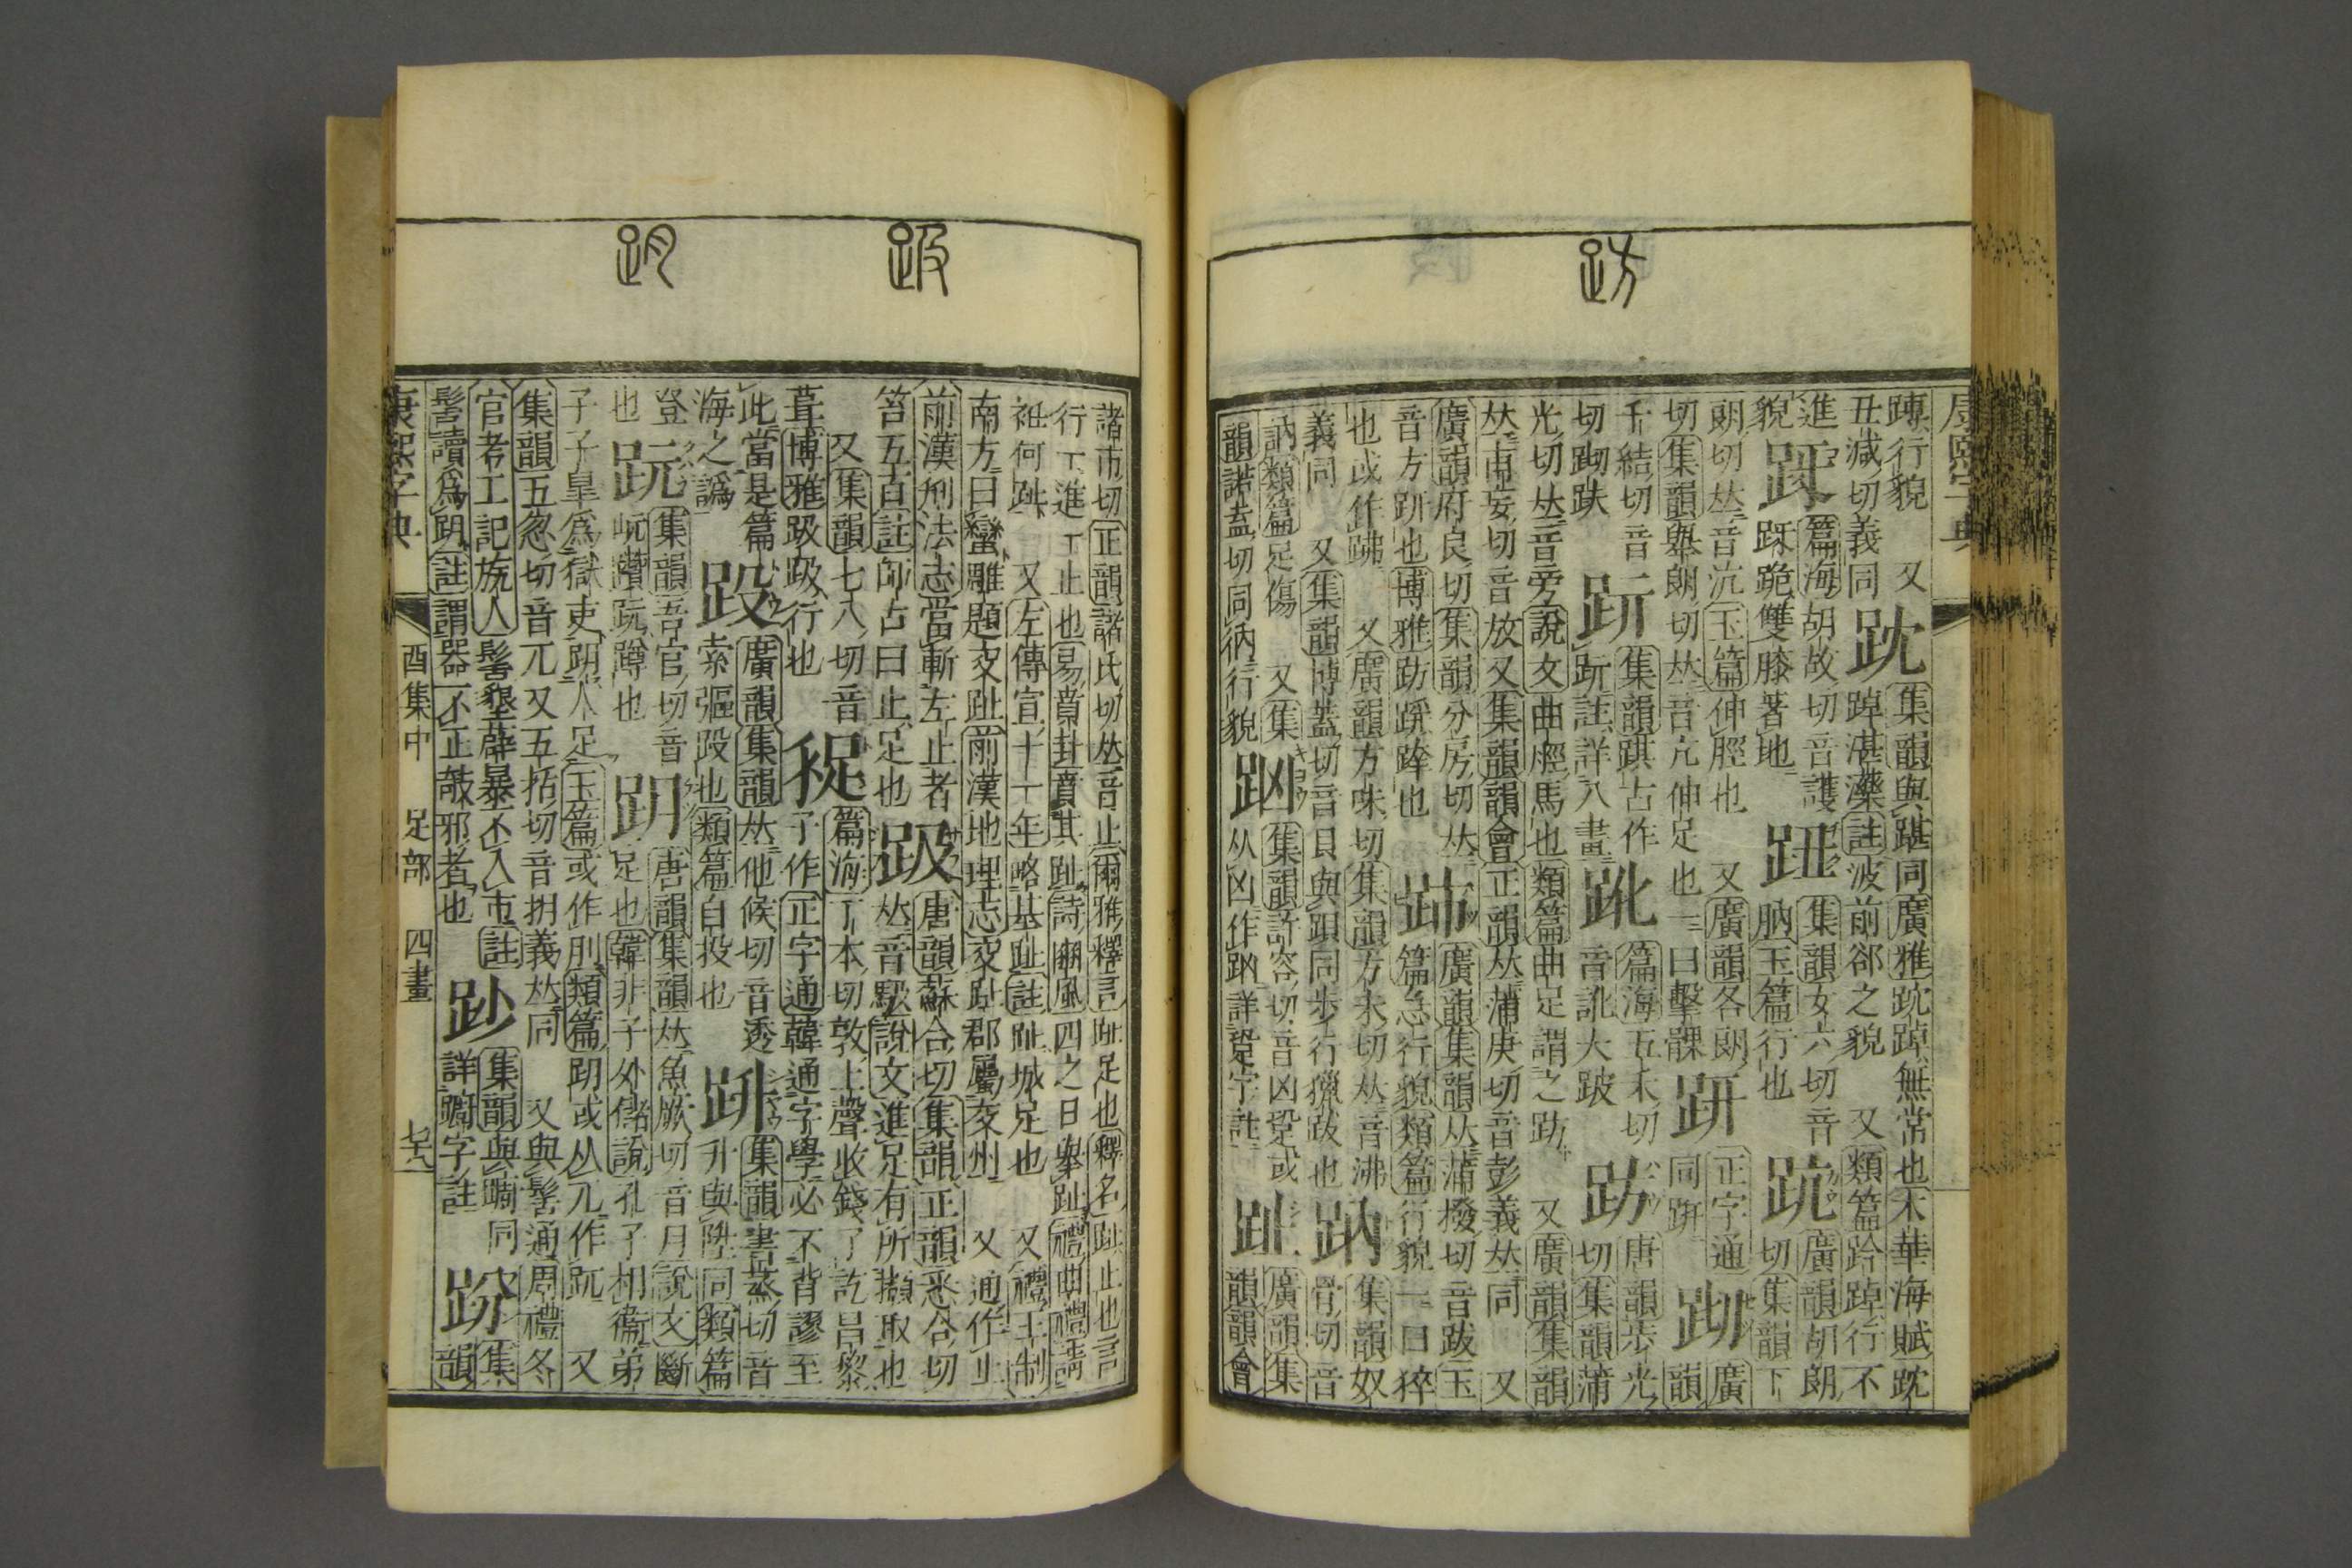 康熙字典
趽
蹲行貌　又
丑減切義同
䟴
集韻與踸同廣雅䟴踔無常也木華海賦䟴
踔湛灤註波前郤之貌　又類篇跲踔行不
進
貌
篇海胡故切音護
跪雙膝著地
䟡
集韻女六切音
朒玉篇行也
䟘
廣韻胡朗
切集韻下
朗切𠀤音沆玉篇伸脛也　又廣韻各朗
切集韻舉朗切𠀤音亢伸足也一曰擊髁
趼
正字通
同趼
䟙
廣
韻
千結切音
切䟙趹
𧿥
集韻跽古作
𧿥註詳八畫
𧿶
篇海五禾切
音訛大跛
趽
唐韻步光
切集韻蒲
光切𠀤音旁說文曲脛馬也類篇曲足謂之趽　又廣韻集韻
𠀤甫妄切音放又集韻韻會正韻𠀤蒲庚切音彭義𠀤同　又
廣韻府良切集韻分房切𠀤
音方趼也博雅趽蹳踤也
䟛
廣韻集韻𠀤蒲撥切音跋玉
篇急行貌類篇行貌一曰猝
也或作　又廣韻方味切集韻方未切𠀤音沸
義同　又集韻博蓋切音貝與䟺同步行獵跋也
䟜
集韻奴
骨切音
訥類篇足傷　又集
韻諾盍切同行貌
𧿫
集韻許容切音凶跫或
从凶作𧿫詳跫字註
趾
廣韻集
韻韻會
趿
跀
諸市切正韻諸氏切𠀤音止爾雅釋言趾足也釋名趾止也言
行一進一止也易賁卦賁其趾詩豳風四之日舉趾禮曲禮請
袵何趾　又左傳宣十一年略基趾註趾城足也　又禮王制
南方曰蠻雕題交趾前漢地理志交趾郡屬交州　又通作止
前漢刑法志當斬左止者
笞五百註師古曰止足也
趿
唐韻蘇合切集韻正韻悉合切
𠀤音馺說文進足有所擷取也
又集韻七八切音
葺博雅趿趿行也
篇海丁本切敦上聲收錢了訖呂黎
子作正字通韓通字學必不背謬至
此當是篇
海之譌
𧿳
廣韻集韻𠀤他候切音透
索彄𧿳也類篇自投也
集韻書蒸切音
升與陞同類篇
登
也
跀
集韻吾官切音
岏䠎䟦蹲也
跀
唐韻集韻𠀤魚厥切音月說文斷
足也韓非子外儲說孔子相衞弟
子子皐爲獄吏跀人足玉篇或作刖類篇跀或从兀作䟦　又
集韻五忽切音兀又五括切音枂義𠀤同　又與髺通周禮冬
官考工記旊人髺墾薜暴不入市註
髺讀爲跀註謂器不正攲邪者也
䟞
集韻與𨄔同
詳𨄔字註
跈
集
韻
康熙字典　酉集中　足部　四畫